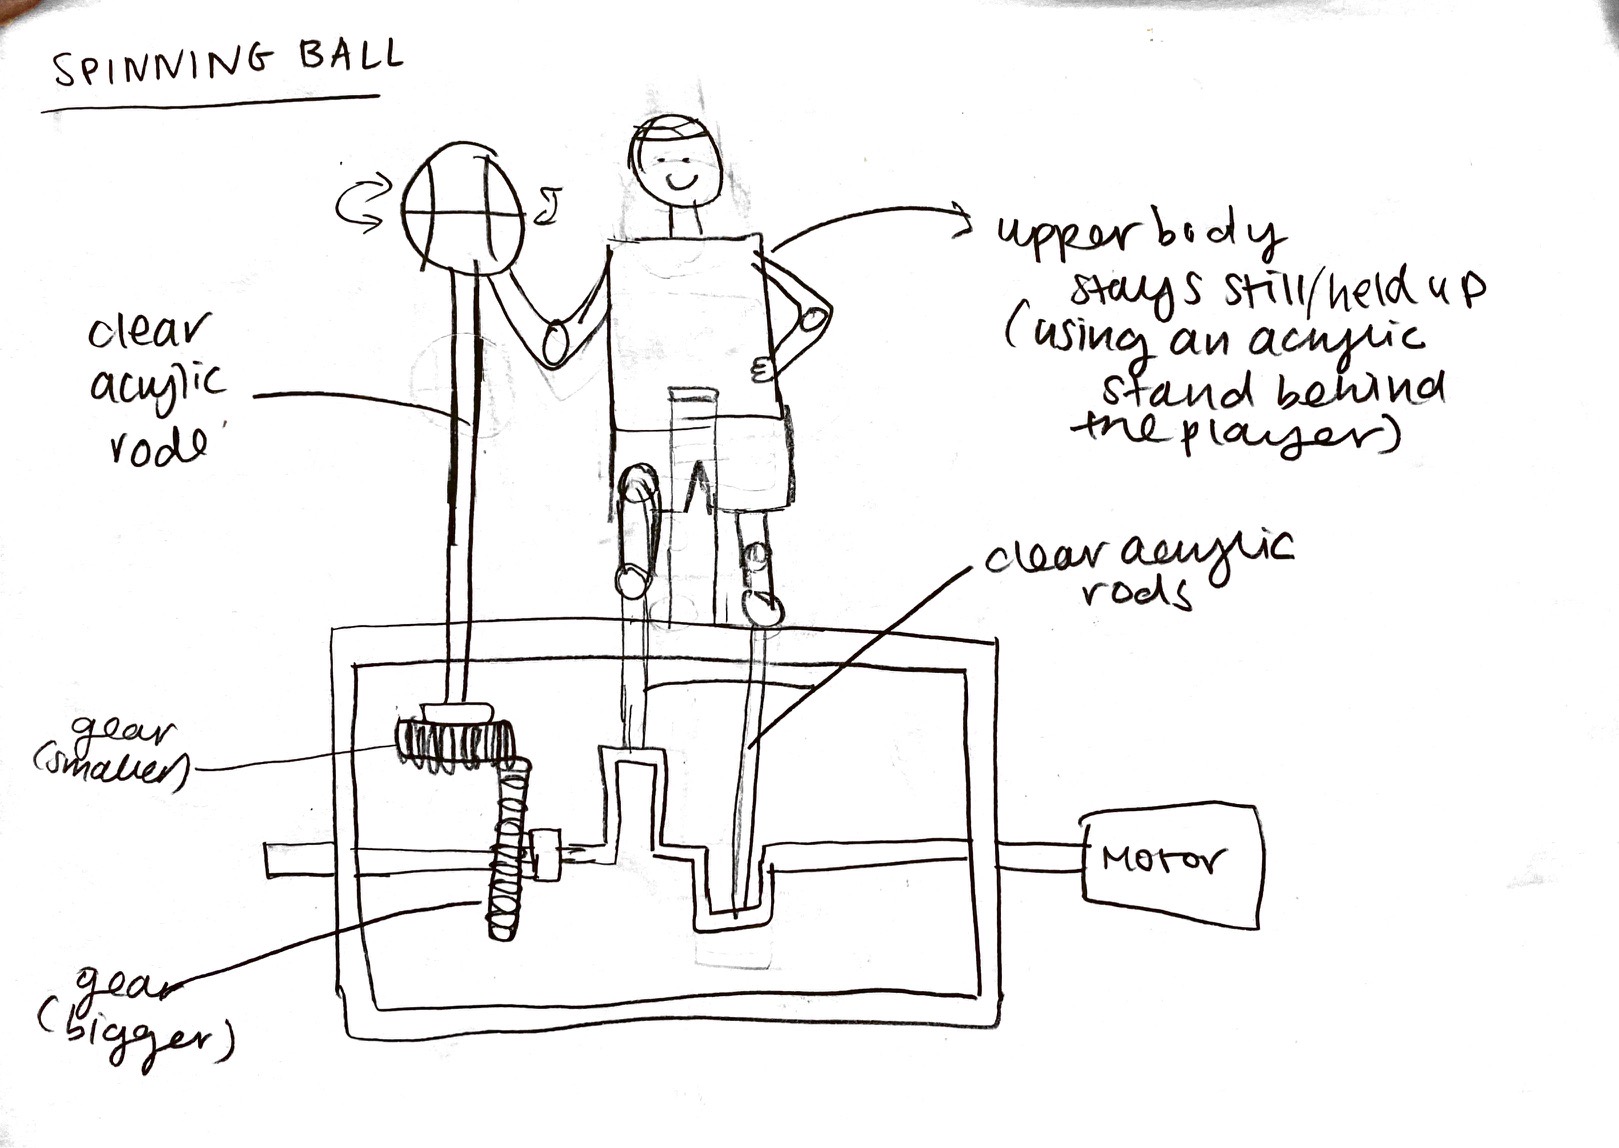 SPINNING BALL
upper body
stays still/held up
(using an acrylic
stand behind
the player)
clear
acrylic
rode
clear acrylic
rods
gear
(smaller)
MOTOR
gear
(bigger)